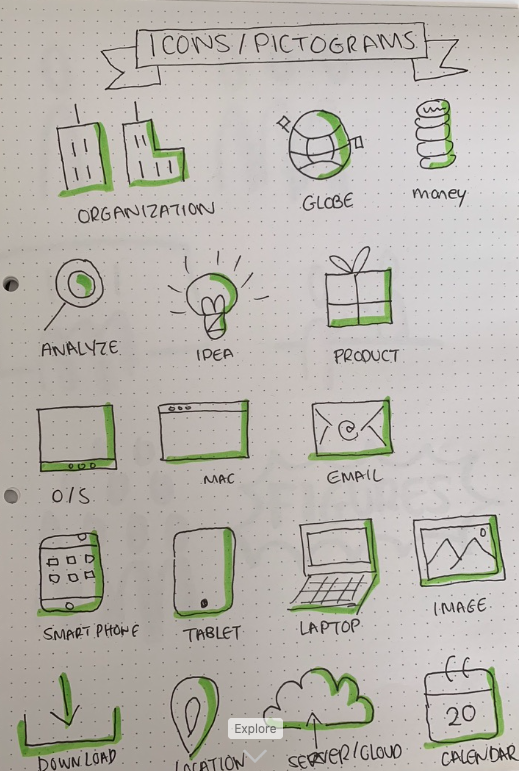 ICONS/PICTOGRAMS
ORGANIZATION
GLOBE
money
ANALYZE
IDEA
PRODUCT
O/S
MAC
@
EMAIL
SMARTPHONE
TABLET
LAPTOP
IMAGE
20
Explore
DOWNLOAD
LOCATION
SERVER/CLOUD
CALENDAR